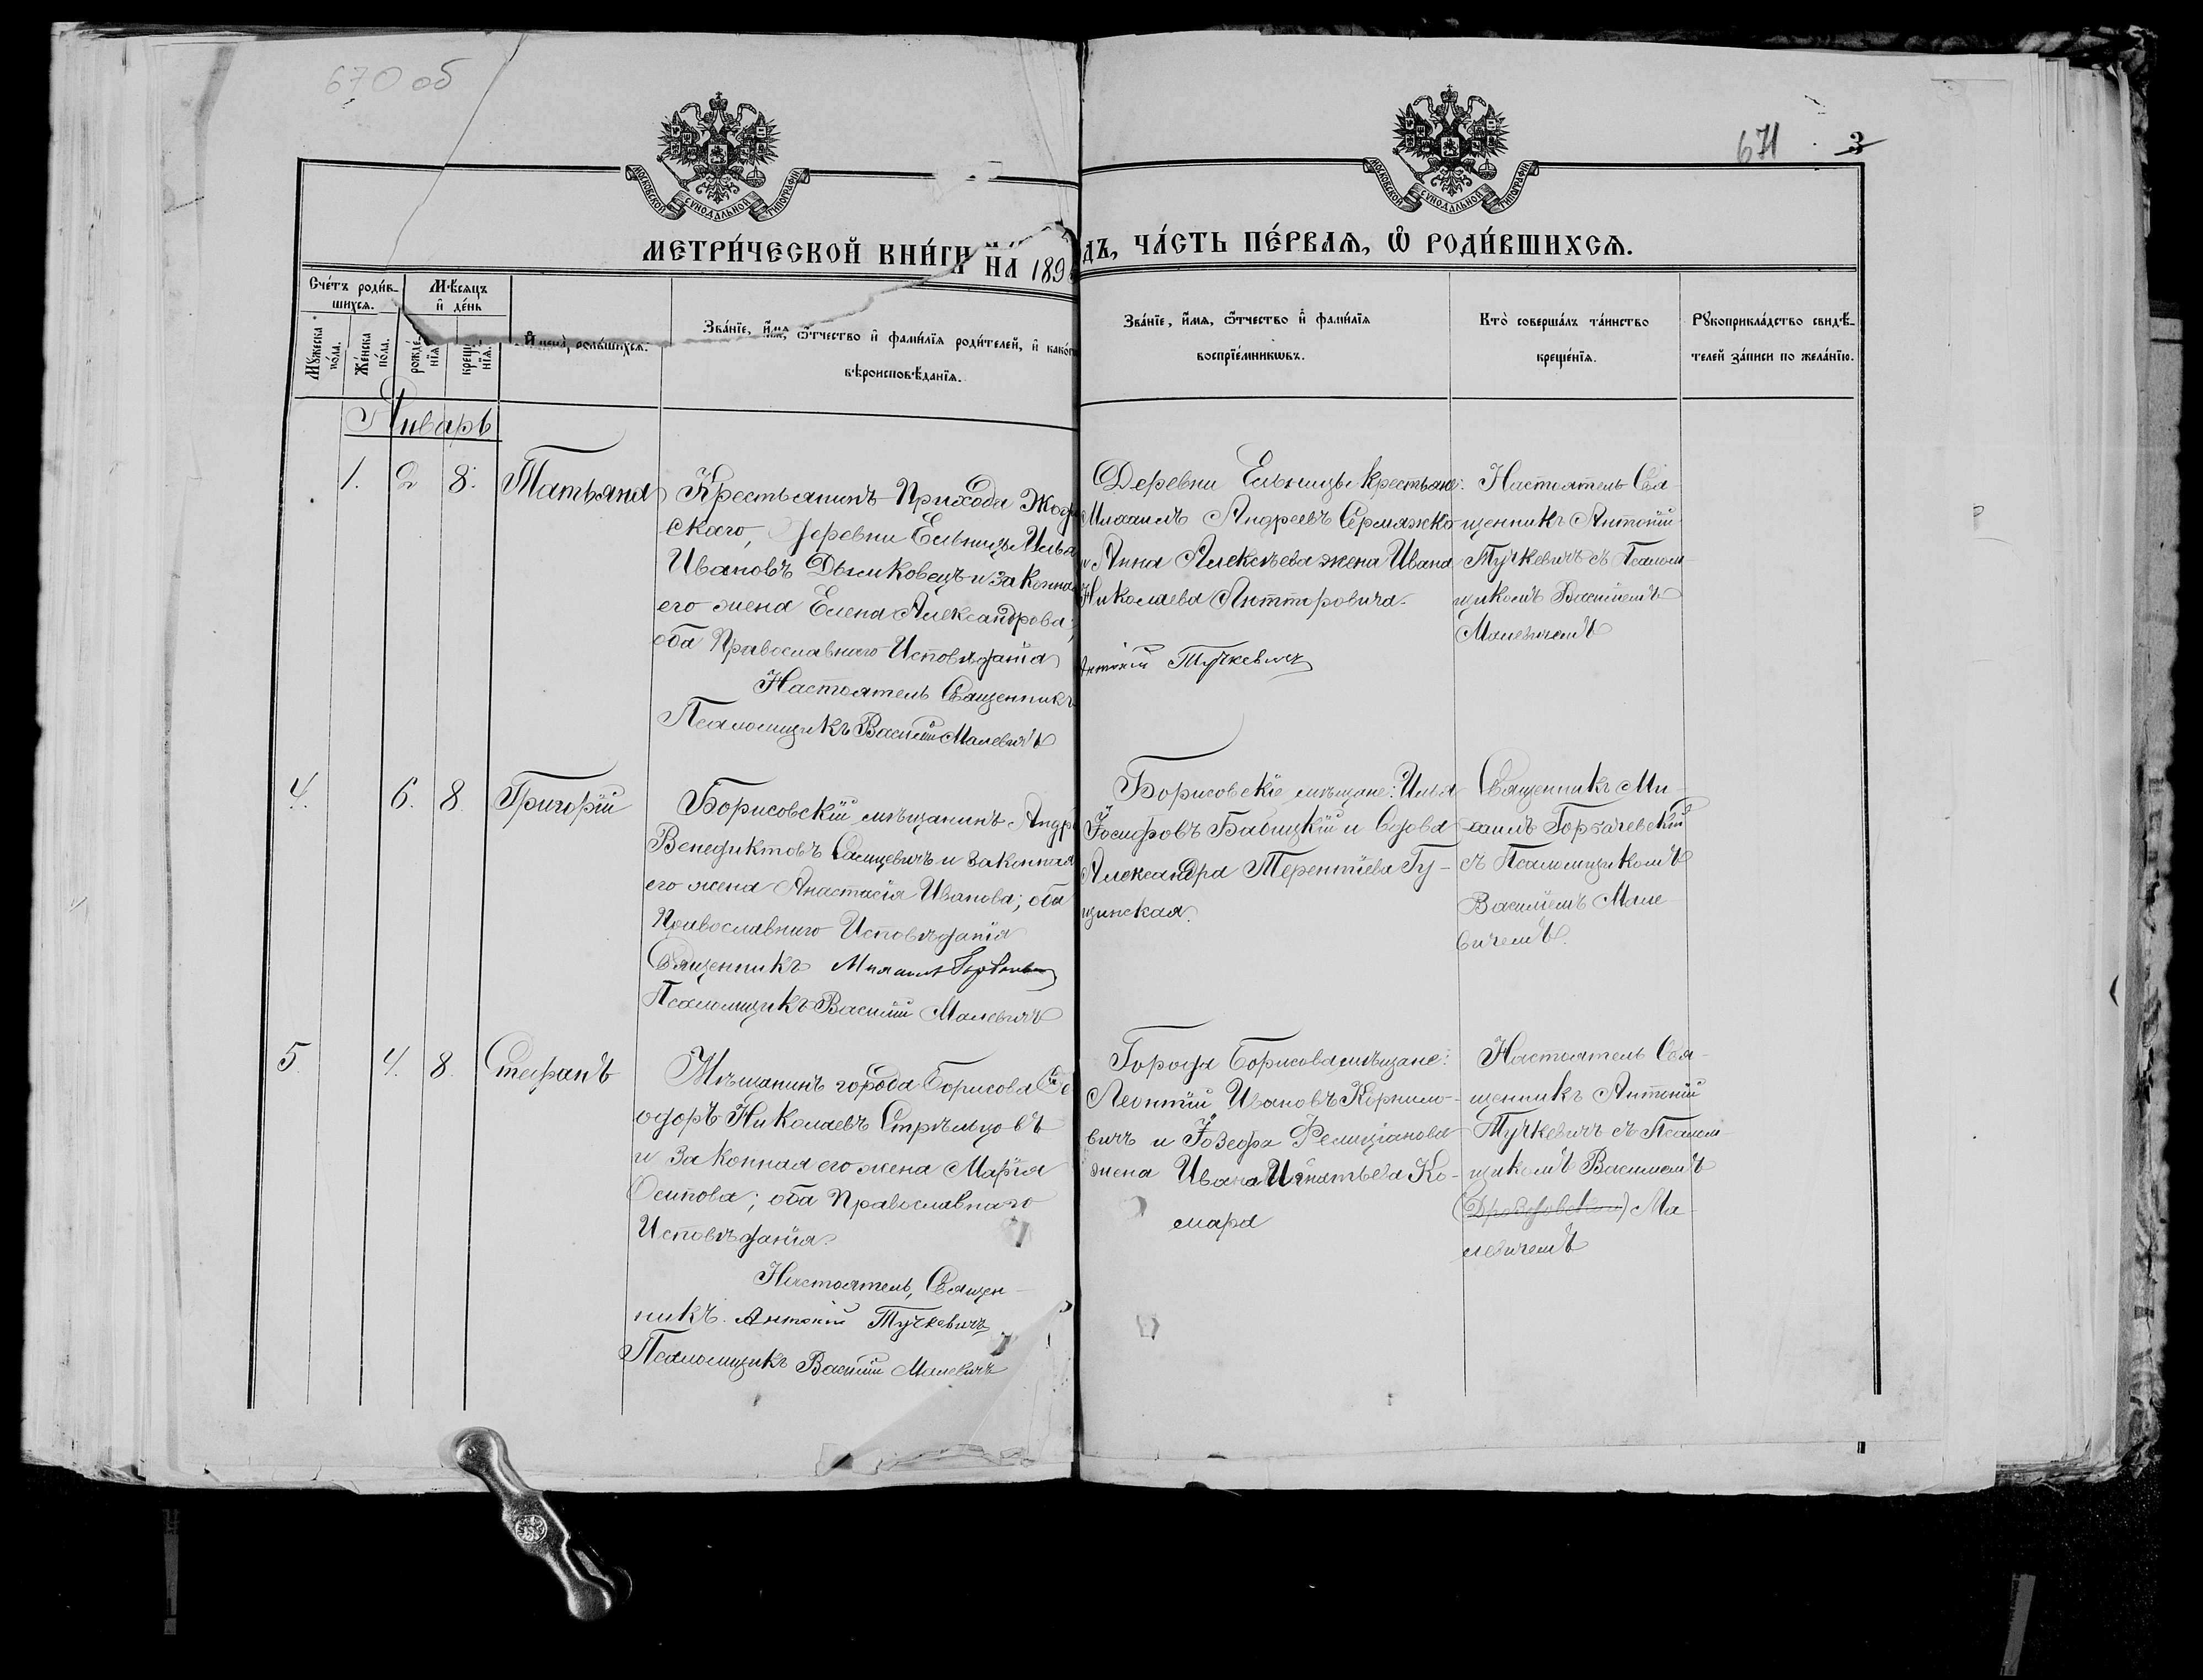 670 об
671
3
МОСКОВСКОЙ СѴНОДАЛЬНОЙ ТИПОГРАФІИ
МОСКОВСКОЙ СѴНОДАЛЬНОЙ ТИПОГРАФІИ
МЕТРИ́ЧЕСКОЙ КНИ́ГИ НА 189
ДЪ, ЧА́СТЬ ПЕ́РВАѦ, Ѡ РОДИ́ВШИХСѦ.
Сче́тъ роди́в-
шихсѧ.
Мꙋ́жеска по́ла.
Же́нска по́ла.
Мѣ́сѧцъ
и҆ де́нь
рожде́нїѧ
креще́нїѧ.
Зва́нїе, и҆́мѧ, ѻ҆́тчество и҆ фами́лїѧ роди́телей, и҆
вѣроисповѣ́данїѧ.
Зва́нїе, и҆́мѧ, ѻ҆́тчество и҆ фами́лїѧ
воспрїе́мникѡвъ.
Кто̀ соверша́лъ та́инство
креще́нїѧ.
Рꙋкоприкла́дство свидѣ́-
телей за́писи по жела́нїю.
Январь
1. 2 8. Татьяна
Крестьянинъ Прихода
скаго, Деревни Ельницы Илья
Ивановъ Дымковецъ и законна
его жена Елена Александрова;
оба Православнаго Исповѣданія
Настоятель Священникъ
Псаломщикъ Василій Малевичъ
Деревни Ельницы крестьяне:
Михаилъ Андреевъ Сермяжко
и Анна Алексѣева жена Ивана
Николаева Антторовича.
Антоній Тучкевичъ
Настоятель Свя-
щенникъ Антоній
Тучкевичъ съ Псалом
щикомъ Василіемъ
Малевичемъ
4. 6. 8 Григорій
Борисовскій мѣщанинъ Андр
Венедиктовъ Санцевичъ и законная
его жена Анастасія Иванова; оба
Православнаго Исповѣданія
Священникъ Михаилъ
Псаломщикъ Василій Малевичъ
Борисовскіе мѣщане: Илья
Іосифовъ Бабицкій и Вдова
Александра Терентіева Гу-
щинская.
Священникъ Ми-
хаилъ Горбачевскій
съ Псаломщикомъ
Василіемъ Мале-
вичемъ.
5. 4. 8. Стефанъ
Мѣщанинъ города Борисова Ѳе
одоръ Николаевъ Стрѣльцовъ
и законная его жена Марія
Осипова; оба Православнаго
Исповѣданія.
Настоятель, Священ-
никъ Антоній Тучкевичъ
Псаломщикъ Василій Малевичъ
Города Борисова мѣщане:
Леонтій Ивановъ Корнило-
вичъ и Іозефа Фелиціанова
жена Ивана Игнатьева Ко-
мара
Настоятель Свя-
щенникъ Антоній
Тучкевичъ съ Псалом-
щикомъ Василіемъ
Ма-
левичемъ